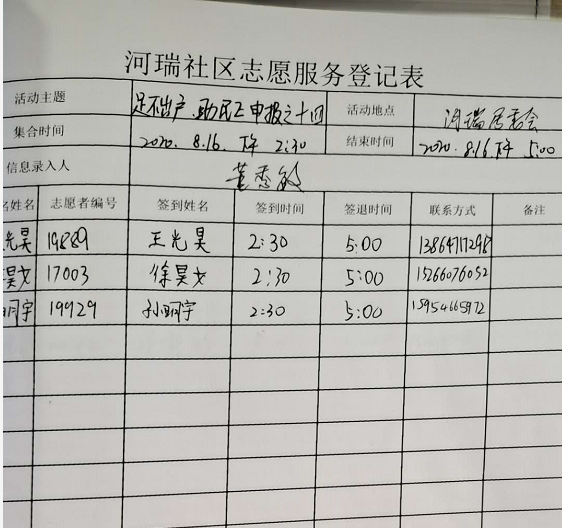 河瑞社区志愿服务登记表
活动主题 足不出户.助民正申报之十四 活动地点 河瑞居委会
集合时间 2020. 8.16. 下午 2:30 结束时间 2020. 8.16.下午 5:00
信息录入人 董秀敏
名姓名 志愿者编号 签到姓名 签到时间 签退时间 联系方式 备注
光昊 19889 王光昊 2:30 5:00 13864717298
昊文 17003 徐昊文 2:30 5:00 15266076052
明宇 19929 孙明宇 2:30 5:00 15954665972